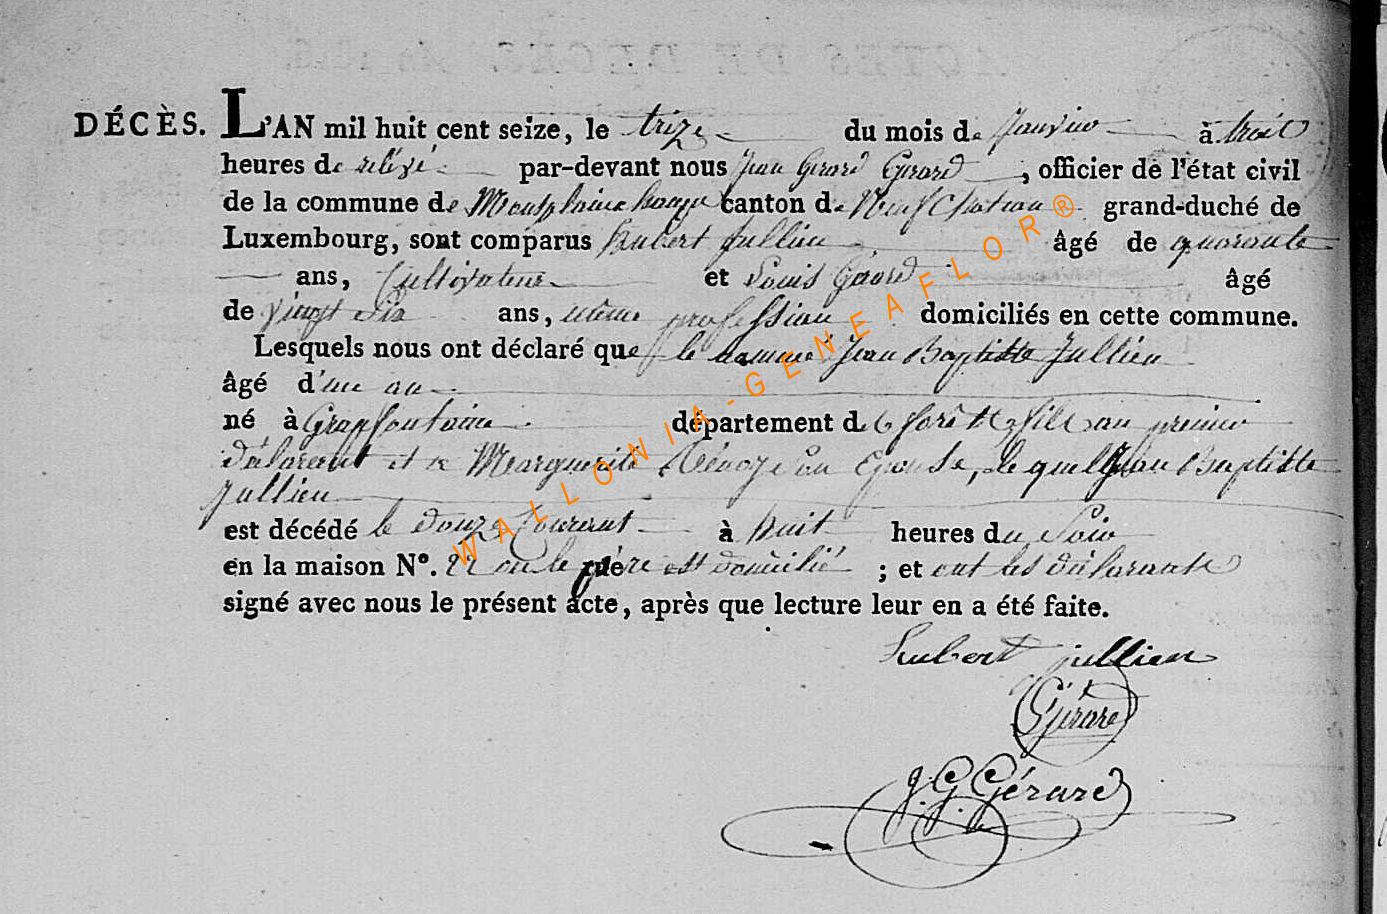 DÉCÈS. L'AN mil huit cent seize, le trize du mois de Janvier à trois
heures de rélevé par-devant nous Jean Gerard Gerard, officier de l'état civil
de la commune de canton de Neufchateau grand-duché de
Luxembourg, sont comparus hubert Jullien âgé de quarante
ans, Cultivateur et Louis Gérard âgé
de vingt six ans, même profession domiciliés en cette commune.
Lesquels nous ont déclaré que le nommé Jean Baptiste Jullien
âgé d'un an
né à Grapfontaine département de forêt fils au premier
déclarant et de Marguerite son Epouse, le quel Jean Baptiste
Jullien
est décédé le douze Courant à huit heures du Soir
en la maison N°. 22 ou le père est domicilié ; et ont les déclarants
signé avec nous le présent acte, après que lecture leur en a été faite.
hubert jullien
Gérard
J. G. Gérard
WALLONIA-GENEAFLOR®